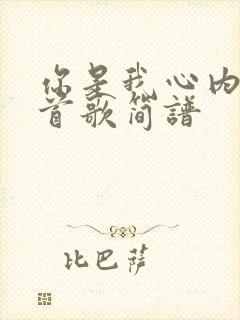 你是我心内
首歌简谱
比巴萨